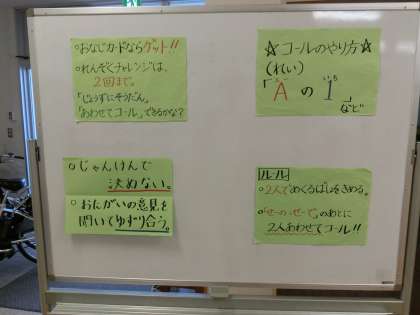 ○おなじカードならゲット!!
○れんぞくチャレンジは、
2回まで。
「じょうずにそうだん」
「あわせてコール」できるかな?
☆コールのやり方☆
(れい)
「Aの1」
など
○じゃんけんで
決めない。
○おたがいの意見を
聞いてゆずり合う。
ルール
○2人でめくるばしょをきめる。
○「せーの・せーの」のあとに
2人あわせてコール!!